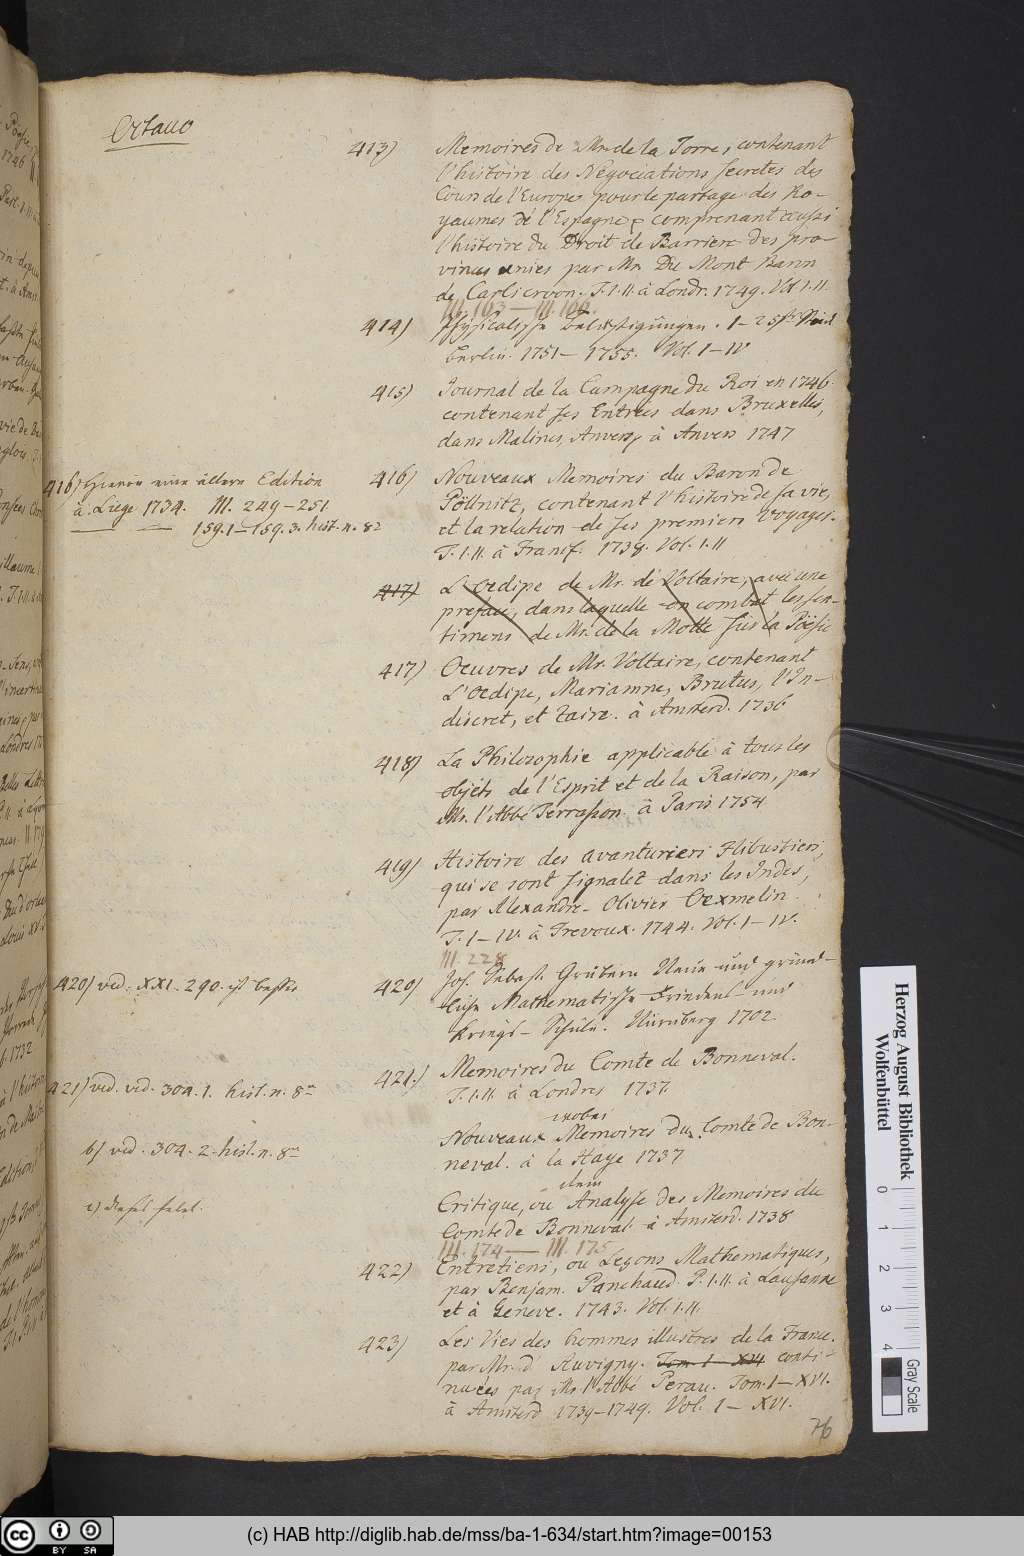 Octavo
413) Memoires de Mr. de la Torre, contenant
l'histoire des Negociations secretes des
Cours de l'Europe pour le partage des Ro-
yaumes de l'Espagne comprenant aussi
l'histoire du Droit de Barriere des pro-
vinces unies par Mr. Du Mont Baron
de Carlscroon. T. I. II. à Londr. 1749. Vol. I. II.
III. 163 — III. 164.
414) Physicalische Belustigungen. 1—25
Berlin. 1751— 1755. Vol. I—IV
415) Journal de la Campagne du Roi en 1746.
contenant ses Entrées dans Bruxelles,
dans Malines, Anvers, à Anvers 1747
416) Hievon eine ältere Edition
à Liége 1734. III. 249–251
159.1—159.3. hist. n. 8º
416) Nouveaux Memoires du Baron de
Pöllnitz, contenant l'histoire de sa vie,
et la relation de ses premiers Voyages.
T. I. II. à Francf. 1738. Vol. I. II
417) L'Oedipe de Mr. de Voltaire, avec une
preface, dans laquelle on combat les sen-
timens de Mr. de la Motte sur la Poësie
417) Oeuvres de Mr. Voltaire, contenant
L'Oedipe, Mariamne, Brutus, l'In-
discret, et Zaire. à Amsterd. 1736
418) La Philosophie applicable à tous les
objéts de l'Esprit et de la Raison, par
Mr. l'Abbé Terrasson. à Paris 1754
419) Histoire des avanturiers Flibustiers,
qui se sont signalez dans les Indes,
par Alexandre-Olivier Oexmelin.
T. I—IV. à Trevoux. 1744. Vol. I—IV.
III. 228
420) vid. XXI. 290. ist besser
420) Joh. Sebast. Grübern Neue und gründ-
liche Mathematische Friedens- und
Kriegs-Schule. Nürnberg 1702
421) vid. vid. 304. 1. hist. n. 8º
421.) Memoires du Comte de Bonneval.
T. I. II. à Londres 1737.
b) vid. 304. 2. hist. n. 8º
Nouveaux Memoires du Comte de Bon-
neval. à la Haye 1737
c) dieses fehlt.
Critique, ou Analyse des Memoires du
Comte de Bonneval. à Amsterd. 1738
III. 174 — III. 175
422) Entretiens, ou Leçons Mathematiques,
par Benjam. Panchaud. P. I. II. à Lausanne
et à Geneve. 1743. Vol. I. II.
423) Les Vies des hommes illustres de la France.
par Mr. d'Auvigny. Tom. I—XVI conti-
nuées par Mr. l'Abbé Perau. Tom. I—XVI.
à Amsterd 1739–1749. Vol. I— XVI.
76
Herzog August Bibliothek
Wolfenbüttel
0 1 2 3 4
Gray Scale
CC BY SA
(c) HAB http://diglib.hab.de/mss/ba-1-634/start.htm?image=00153